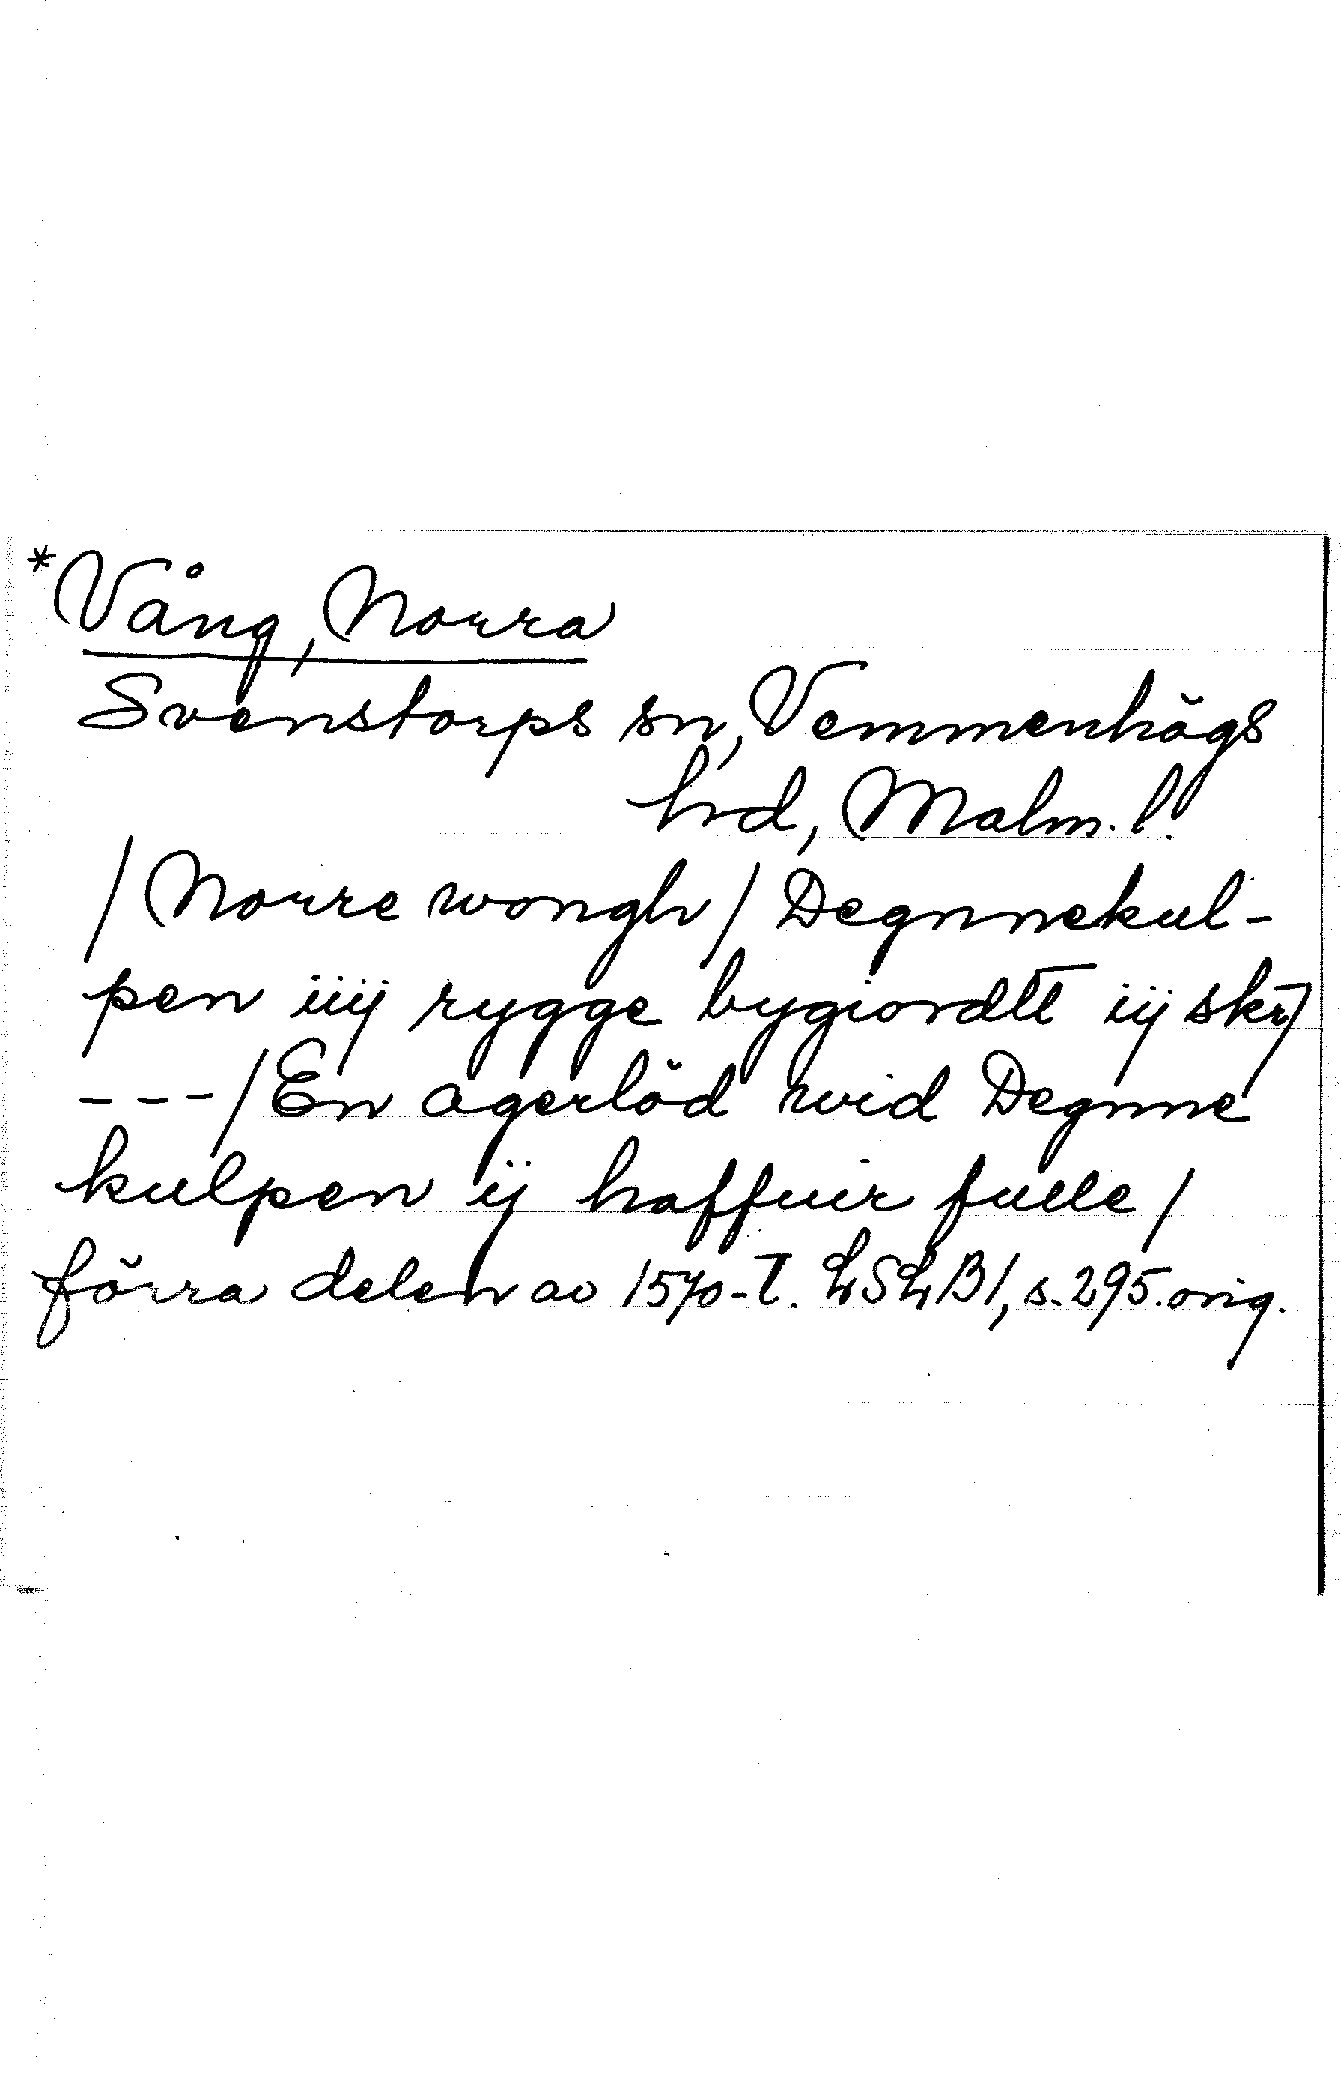 *Vång, Norra
Svenstorps sn, Vemmenhögs
hd, Malm. l.
/ Norre wongh / Degnnekul-
pen iiij rygge bygiordtt iij skr /
--- / En agerlöd wid Degnne
kulpen ij haffuir fulle /
förra delen av 1570-t. LSLB1, s. 295. orig.